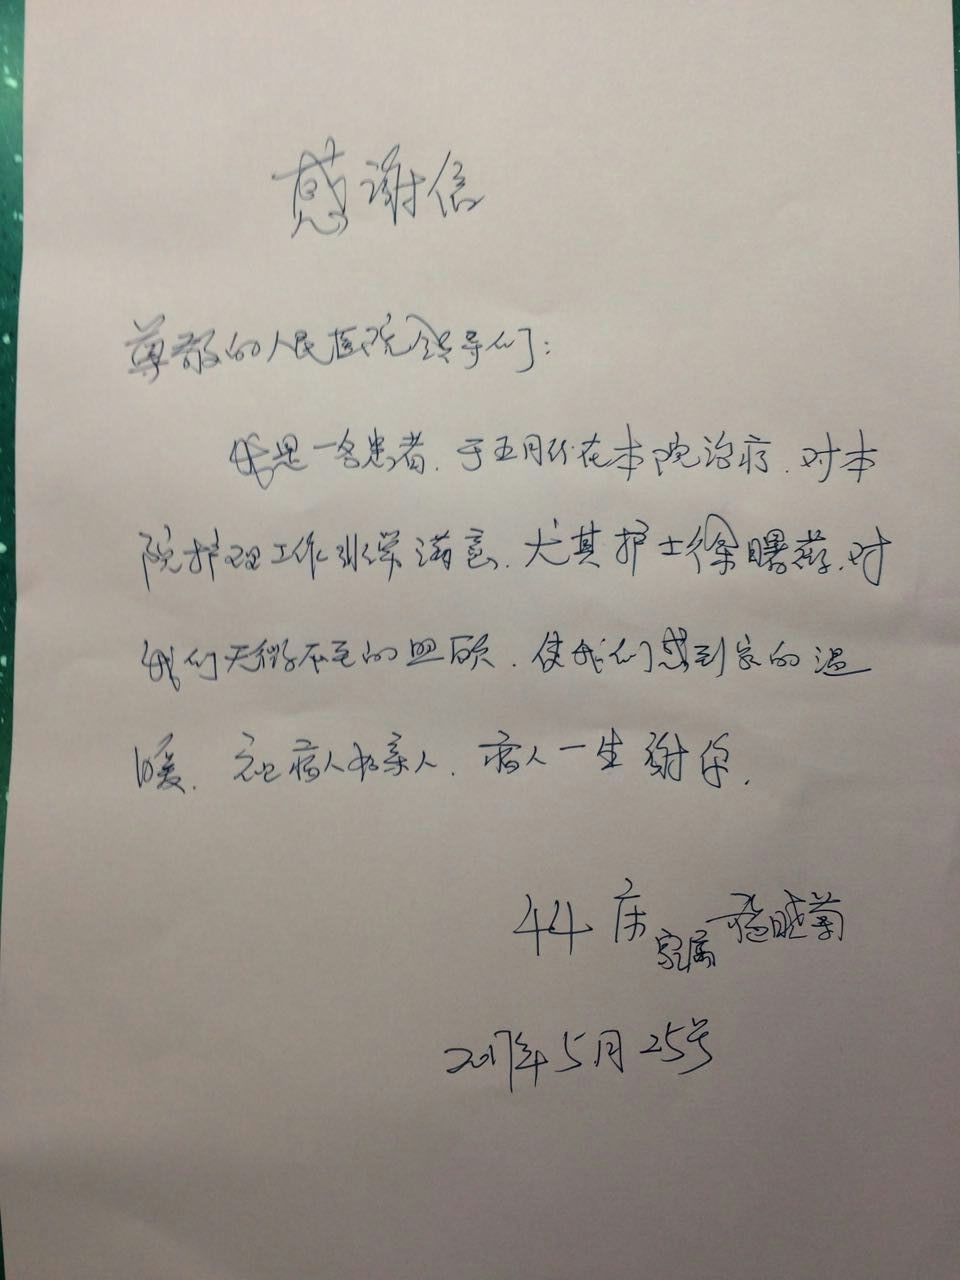 感谢信
尊敬的人民医院领导们：
我是一名患者.于五月份在本院治疗.对本
院护理工作非常满意.尤其护士徐曙薇.对
我们无微不至的照顾.使我们感到家的温
暖.视病人为亲人.病人一生谢你.
44床家属 晓菊
2017年5月25号